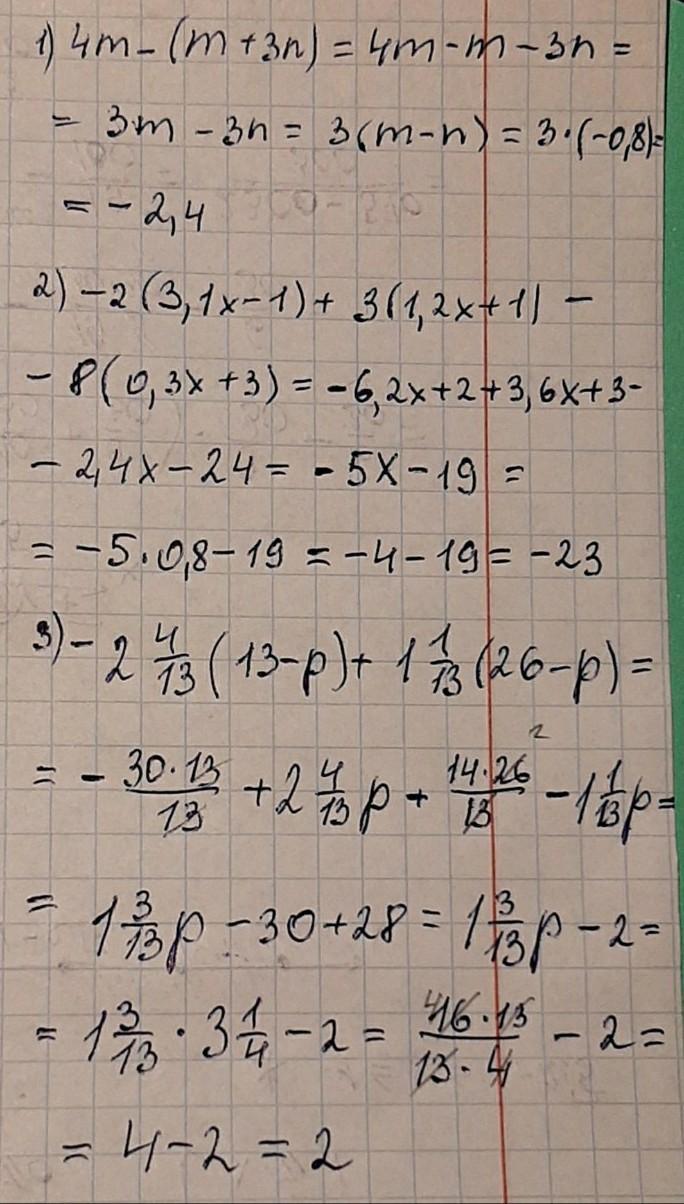 1) 4m - (m + 3n) = 4m - m - 3n =
= 3m - 3n = 3(m - n) = 3·(-0,8) =
= -2,4
2) -2(3,1x - 1) + 3(1,2x + 1) -
- 8(0,3x + 3) = -6,2x + 2 + 3,6x + 3 -
- 2,4x - 24 = -5x - 19 =
= -5·0,8 - 19 = -4 - 19 = -23
3) -2 4/13 (13 - p) + 1 1/13 (26 - p) =
= - 30·13/13 + 2 4/13 p + 14·26/13 2 - 1 1/13 p =
= 1 3/13 p - 30 + 28 = 1 3/13 p - 2 =
= 1 3/13 · 3 1/4 - 2 = 16·13/13·4 - 2 =
= 4 - 2 = 2